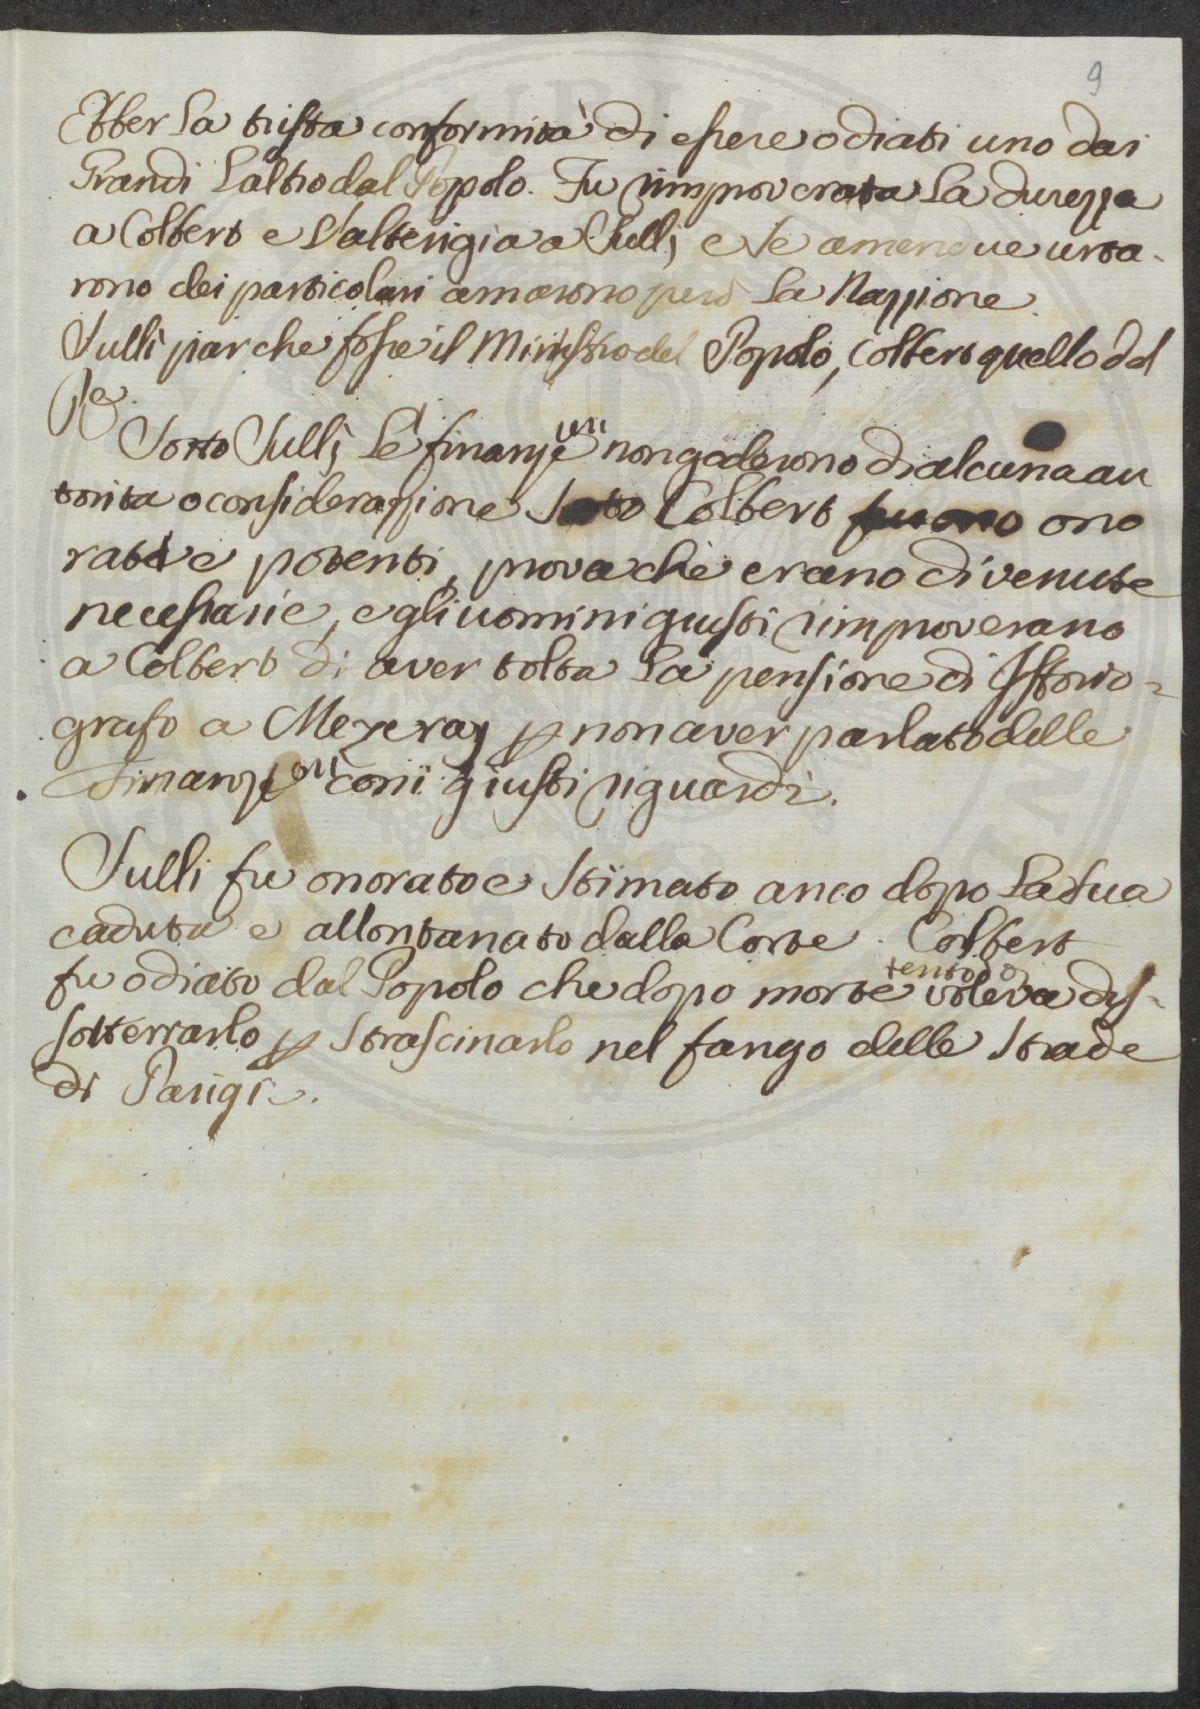 9
Ebber la trista conformità di essere odiati uno dai
Grandi l'altro dal Popolo. Fu rimproverata la durezza
a Colbert e l'alterigia a Sulli, e se amendue urta-
rono dei particolari amarono però la Nazzione.
Sulli par che fosse il Ministro del Popolo, Colbert quello del
Re.
Sotto Sulli le finanze non goderono di alcuna au
torita o considerazzione Sotto Colbert furono ono
rati e potenti, prova che erano divenute
necessarie, e gli uomini giusti rimproverano
a Colbert di aver tolta la pensione di Istorio=
grafo a Mezeray p non aver parlato delle
Finanze con i giusti riguardi.
Sulli fu onorato e stimato anco dopo la sua
caduta e allontanato dalla Corte. Colbert
fu odiato dal Popolo che dopo morte voleva dis-
tentodo
sotterrarlo p strascinarlo nel fango delle strade
di Parigi.